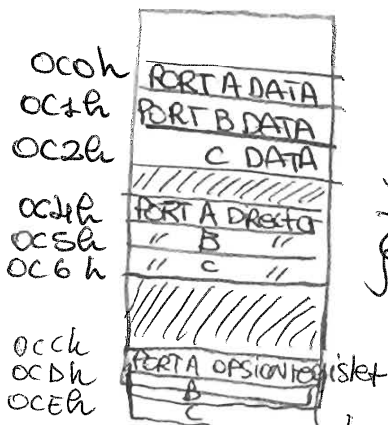 0C0h PORT A DATA
0C1h PORT B DATA
0C2h C DATA
0C4h PORT A DRector
0C5h " B "
0C6h " C "
0CCh PORT A OPSION register
0CDh B
0CEh C